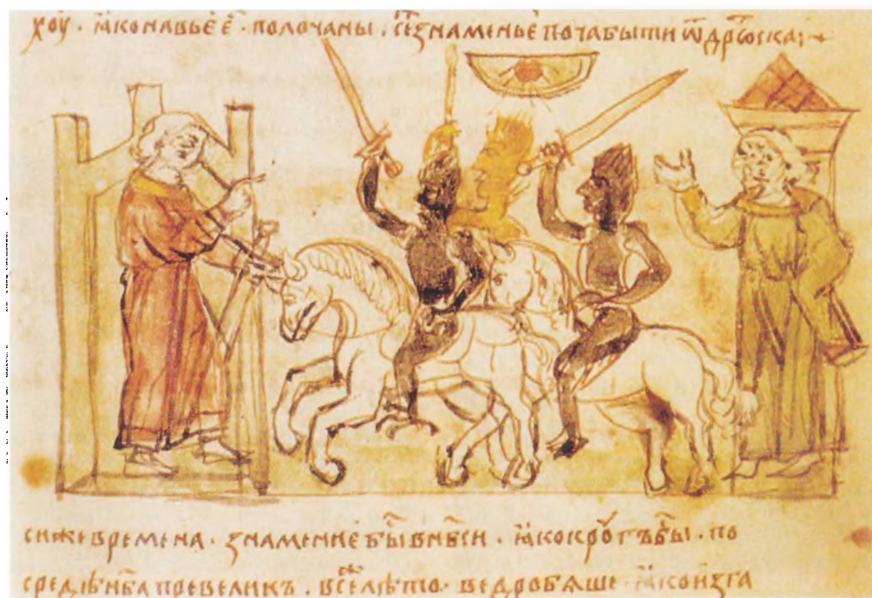 хоу · ꙗконавьеє҃ · полочаны · се҃знаменьепочабыти ѿдр҃ьоска
сижевремена · знамениебы҃внб҃си · ꙗкокрогъбы҃ · по
средѣнб҃апревеликъ · все҃лѣто · ведробѧше ꙗкоизга